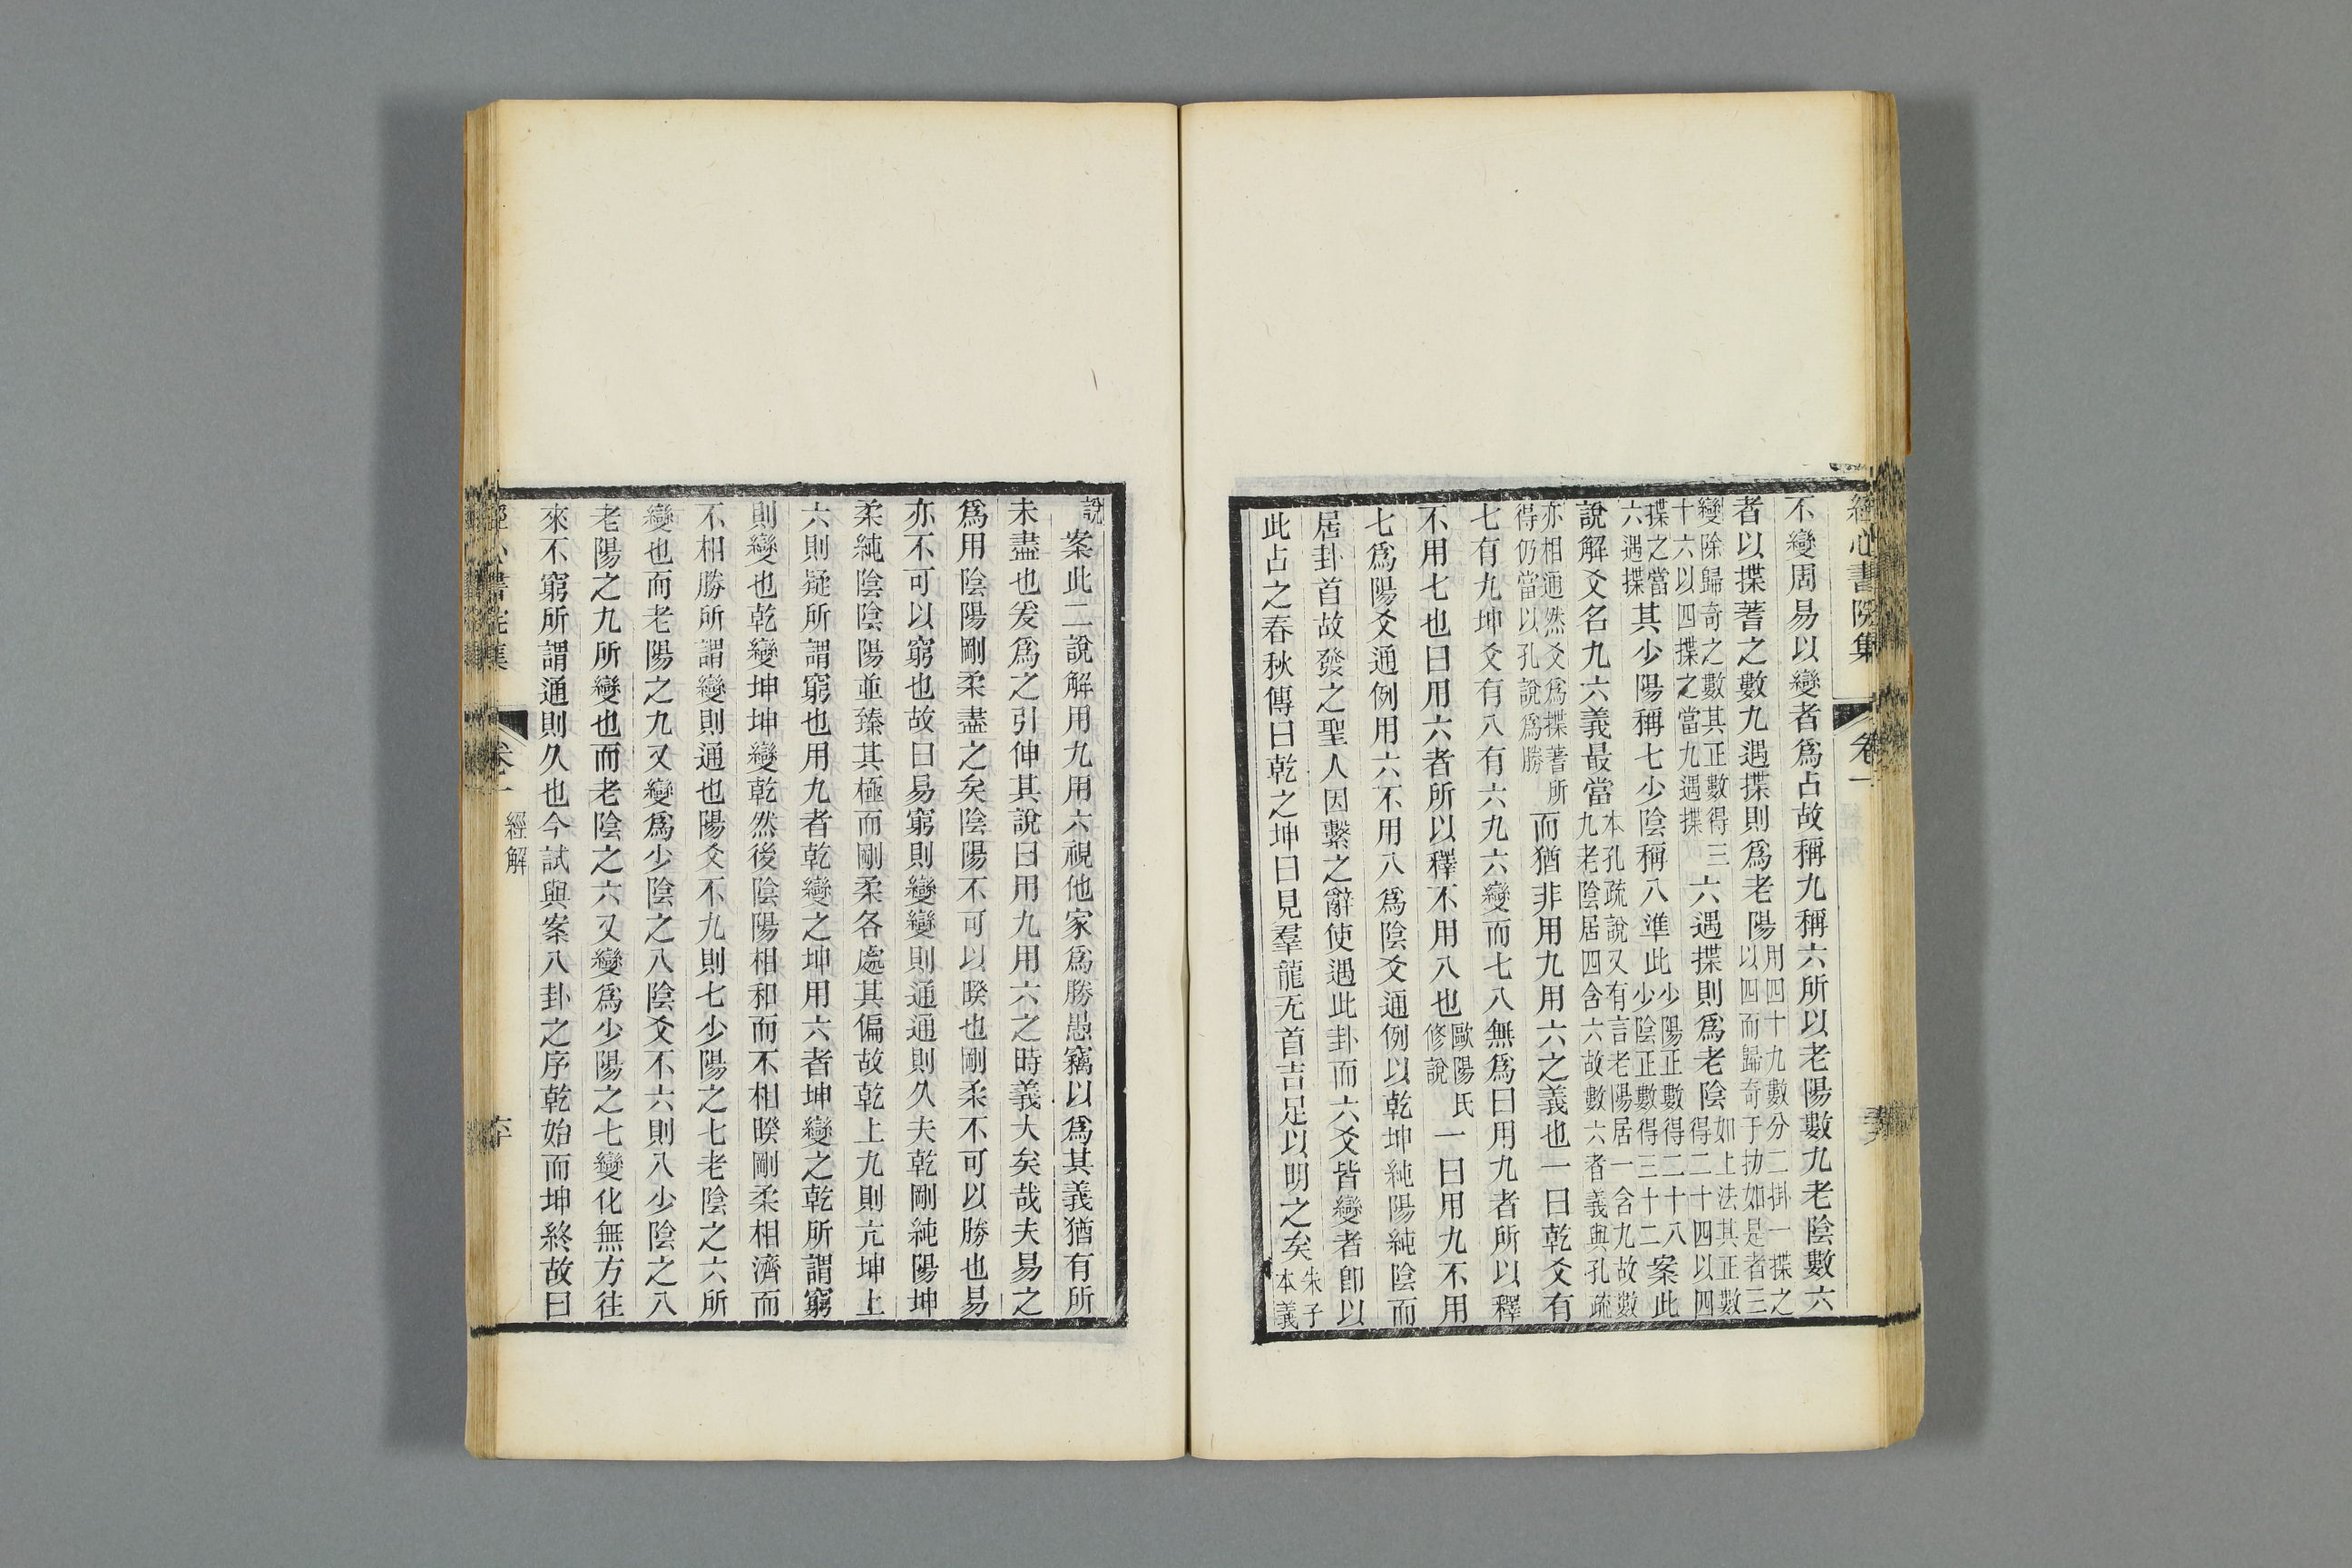 經心書院集 卷一
不變周易以變者爲占故稱九稱六所以老陽數九老陰數六
者以揲蓍之數九遇揲則爲老陽用四十九數分二掛一揲之以四而歸奇于扐如是者三
變除歸奇之數其正數得三十六以四揲之當九遇揲六遇揲則爲老陰如上法其正數得二十四以四
揲之當六遇揲其少陽稱七少陰稱八準此少陽正數得二十八少陰正數得三十二案此
說解爻名九六義最當本孔疏說又有言老陽居一含九故數九老陰居四含六故數六者義與孔疏
亦相通然爻爲揲蓍所得仍當以孔說爲勝而猶非用九用六之義也一曰乾爻有
七有九坤爻有八有六九六變而七八無爲曰用九者所以釋
不用七也曰用六者所以釋不用八也歐陽氏修說一曰用九不用
七爲陽爻通例用六不用八爲陰爻通例以乾坤純陽純陰而
居卦首故發之聖人因繫之辭使遇此卦而六爻皆變者卽以
此占之春秋傳曰乾之坤曰見羣龍无首吉足以明之矣朱子本義
說案此二說解用九用六視他家爲勝愚竊以爲其義猶有所
未盡也爰爲之引伸其說曰用九用六之時義大矣哉夫易之
爲用陰陽剛柔盡之矣陰陽不可以睽也剛柔不可以勝也易
亦不可以窮也故曰易窮則變變則通通則久夫乾剛純陽坤
柔純陰陰陽並臻其極而剛柔各處其偏故乾上九則亢坤上
六則疑所謂窮也用九者乾變之坤用六者坤變之乾所謂窮
則變也乾變坤坤變乾然後陰陽相和而不相睽剛柔相濟而
不相勝所謂變則通也陽爻不九則七少陽之七老陰之六所
變也而老陽之九又變爲少陰之八陰爻不六則八少陰之八
老陽之九所變也而老陰之六又變爲少陽之七變化無方往
來不窮所謂通則久也今試與案八卦之序乾始而坤終故曰
經心書院集 卷一 經解 六十